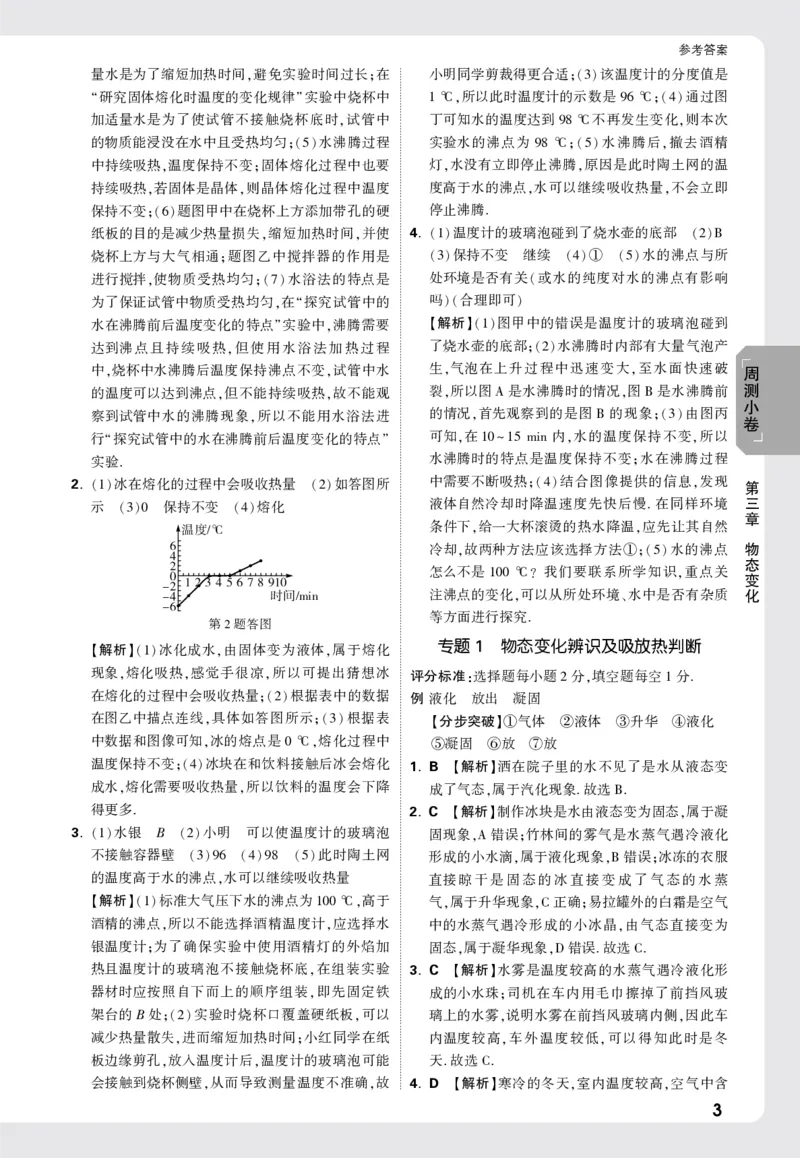 参考答案
量水是为了缩短加热时间,避免实验时间过长;在
“研究固体熔化时温度的变化规律”实验中烧杯中
加适量水是为了使试管不接触烧杯底时,试管中
的物质能浸没在水中且受热均匀;(5)水沸腾过程
中持续吸热,温度保持不变;固体熔化过程中也要
持续吸热,若固体是晶体,则晶体熔化过程中温度
保持不变;(6)题图甲中在烧杯上方添加带孔的硬
纸板的目的是减少热量损失,缩短加热时间,并使
烧杯上方与大气相通;题图乙中搅拌器的作用是
进行搅拌,使物质受热均匀;(7)水浴法的特点是
为了保证试管中物质受热均匀,在“探究试管中的
水在沸腾前后温度变化的特点”实验中,沸腾需要
达到沸点且持续吸热,但使用水浴法加热过程
中,烧杯中水沸腾后温度保持沸点不变,试管中水
的温度可以达到沸点,但不能持续吸热,故不能观
察到试管中水的沸腾现象,所以不能用水浴法进
行“探究试管中的水在沸腾前后温度变化的特点”
实验.
2. (1)冰在熔化的过程中会吸收热量 (2)如答图所
示 (3)0 保持不变 (4)熔化
温度/℃
6
4
2
0
-2
-4
-6
1 2 3 4 5 6 7 8 9 10
时间/min
第2题答图
【解析】(1)冰化成水,由固体变为液体,属于熔化
现象,熔化吸热,感觉手很凉,所以可提出猜想冰
在熔化的过程中会吸收热量;(2)根据表中的数据
在图乙中描点连线,具体如答图所示;(3)根据表
中数据和图像可知,冰的熔点是0 ℃,熔化过程中
温度保持不变;(4)冰块在和饮料接触后冰会熔化
成水,熔化需要吸收热量,所以饮料的温度会下降
得更多.
3. (1)水银 B (2)小明 可以使温度计的玻璃泡
不接触容器壁 (3)96 (4)98 (5)此时陶土网
的温度高于水的沸点,水可以继续吸收热量
【解析】(1)标准大气压下水的沸点为100 ℃,高于
酒精的沸点,所以不能选择酒精温度计,应选择水
银温度计;为了确保实验中使用酒精灯的外焰加
热且温度计的玻璃泡不接触烧杯底,在组装实验
器材时应按照自下而上的顺序组装,即先固定铁
架台的B处;(2)实验时烧杯口覆盖硬纸板,可以
减少热量散失,进而缩短加热时间;小红同学在纸
板边缘剪孔,放入温度计后,温度计的玻璃泡可能
会接触到烧杯侧壁,从而导致测量温度不准确,故
小明同学剪裁得更合适;(3)该温度计的分度值是
1 ℃,所以此时温度计的示数是96 ℃;(4)通过图
丁可知水的温度达到98 ℃不再发生变化,则本次
实验水的沸点为98 ℃;(5)水沸腾后,撤去酒精
灯,水没有立即停止沸腾,原因是此时陶土网的温
度高于水的沸点,水可以继续吸收热量,不会立即
停止沸腾.
4. (1)温度计的玻璃泡碰到了烧水壶的底部 (2)B
(3)保持不变 继续 (4)① (5)水的沸点与所
处环境是否有关(或水的纯度对水的沸点有影响
吗)(合理即可)
【解析】(1)图甲中的错误是温度计的玻璃泡碰到
了烧水壶的底部;(2)水沸腾时内部有大量气泡产
生,气泡在上升过程中迅速变大,至水面快速破
裂,所以图A是水沸腾时的情况,图B是水沸腾前
的情况,首先观察到的是图B的现象;(3)由图丙
可知,在10~15 min内,水的温度保持不变,所以
水沸腾时的特点是温度保持不变;水在沸腾过程
中需要不断吸热;(4)结合图像提供的信息,发现
液体自然冷却时降温速度先快后慢.在同样环境
条件下,给一大杯滚烫的热水降温,应先让其自然
冷却,故两种方法应该选择方法①;(5)水的沸点
怎么不是100 ℃?我们要联系所学知识,重点关
注沸点的变化,可以从所处环境、水中是否有杂质
等方面进行探究.
专题1 物态变化辨识及吸放热判断
评分标准:选择题每小题2分,填空题每空1分.
例 液化 放出 凝固
【分步突破】①气体 ②液体 ③升华 ④液化
⑤凝固 ⑥放 ⑦放
1. B 【解析】洒在院子里的水不见了是水从液态变
成了气态,属于汽化现象.故选B.
2. C 【解析】制作冰块是水由液态变为固态,属于凝
固现象,A错误;竹林间的雾气是水蒸气遇冷液化
形成的小水滴,属于液化现象,B错误;冰冻的衣服
直接晾干是固态的冰直接变成了气态的水蒸
气,属于升华现象,C正确;易拉罐外的白霜是空气
中的水蒸气遇冷形成的小冰晶,由气态直接变为
固态,属于凝华现象,D错误.故选C.
3. C 【解析】水雾是温度较高的水蒸气遇冷液化形
成的小水珠;司机在车内用毛巾擦掉了前挡风玻
璃上的水雾,说明水雾在前挡风玻璃内侧,因此车
内温度较高,车外温度较低,可以得知此时是冬
天.故选C.
4. D 【解析】寒冷的冬天,室内温度较高,空气中含
周测小卷
第三章 物态变化
3